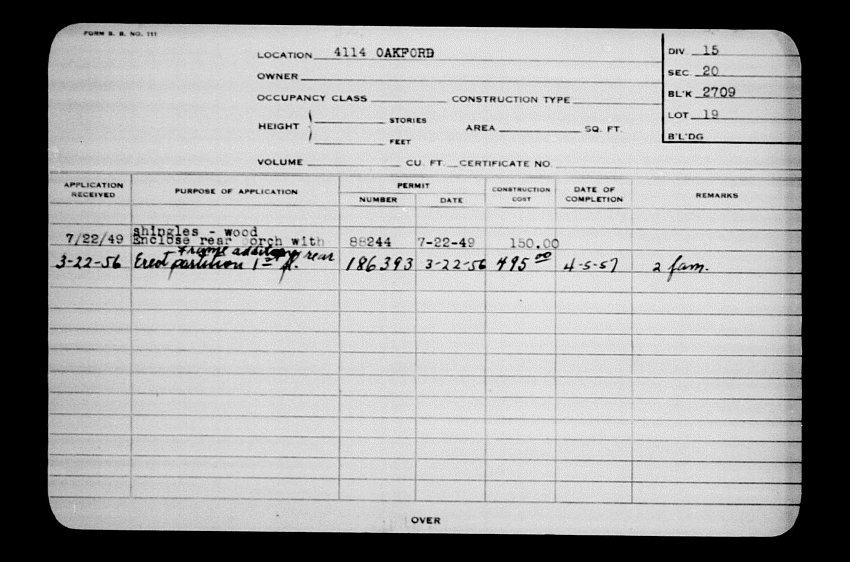 FORM B. B. NO. 111
LOCATION 4114 OAKFORD
OWNER
OCCUPANCY CLASS CONSTRUCTION TYPE
HEIGHT STORIES AREA SQ. FT.
FEET
VOLUME CU. FT. CERTIFICATE NO.
DIV 15
SEC 20
BL'K 2709
LOT 19
B'L'DG
APPLICATION RECEIVED PURPOSE OF APPLICATION PERMIT NUMBER DATE CONSTRUCTION COST DATE OF COMPLETION REMARKS
shingles - wood
7/22/49 Enclose rear orch with 88244 7-22-49 150.00
Frame rear
3-22-56 Erect partition 1st fl. 186393 3-22-56 495 00 4-5-57 2 fam.
OVER